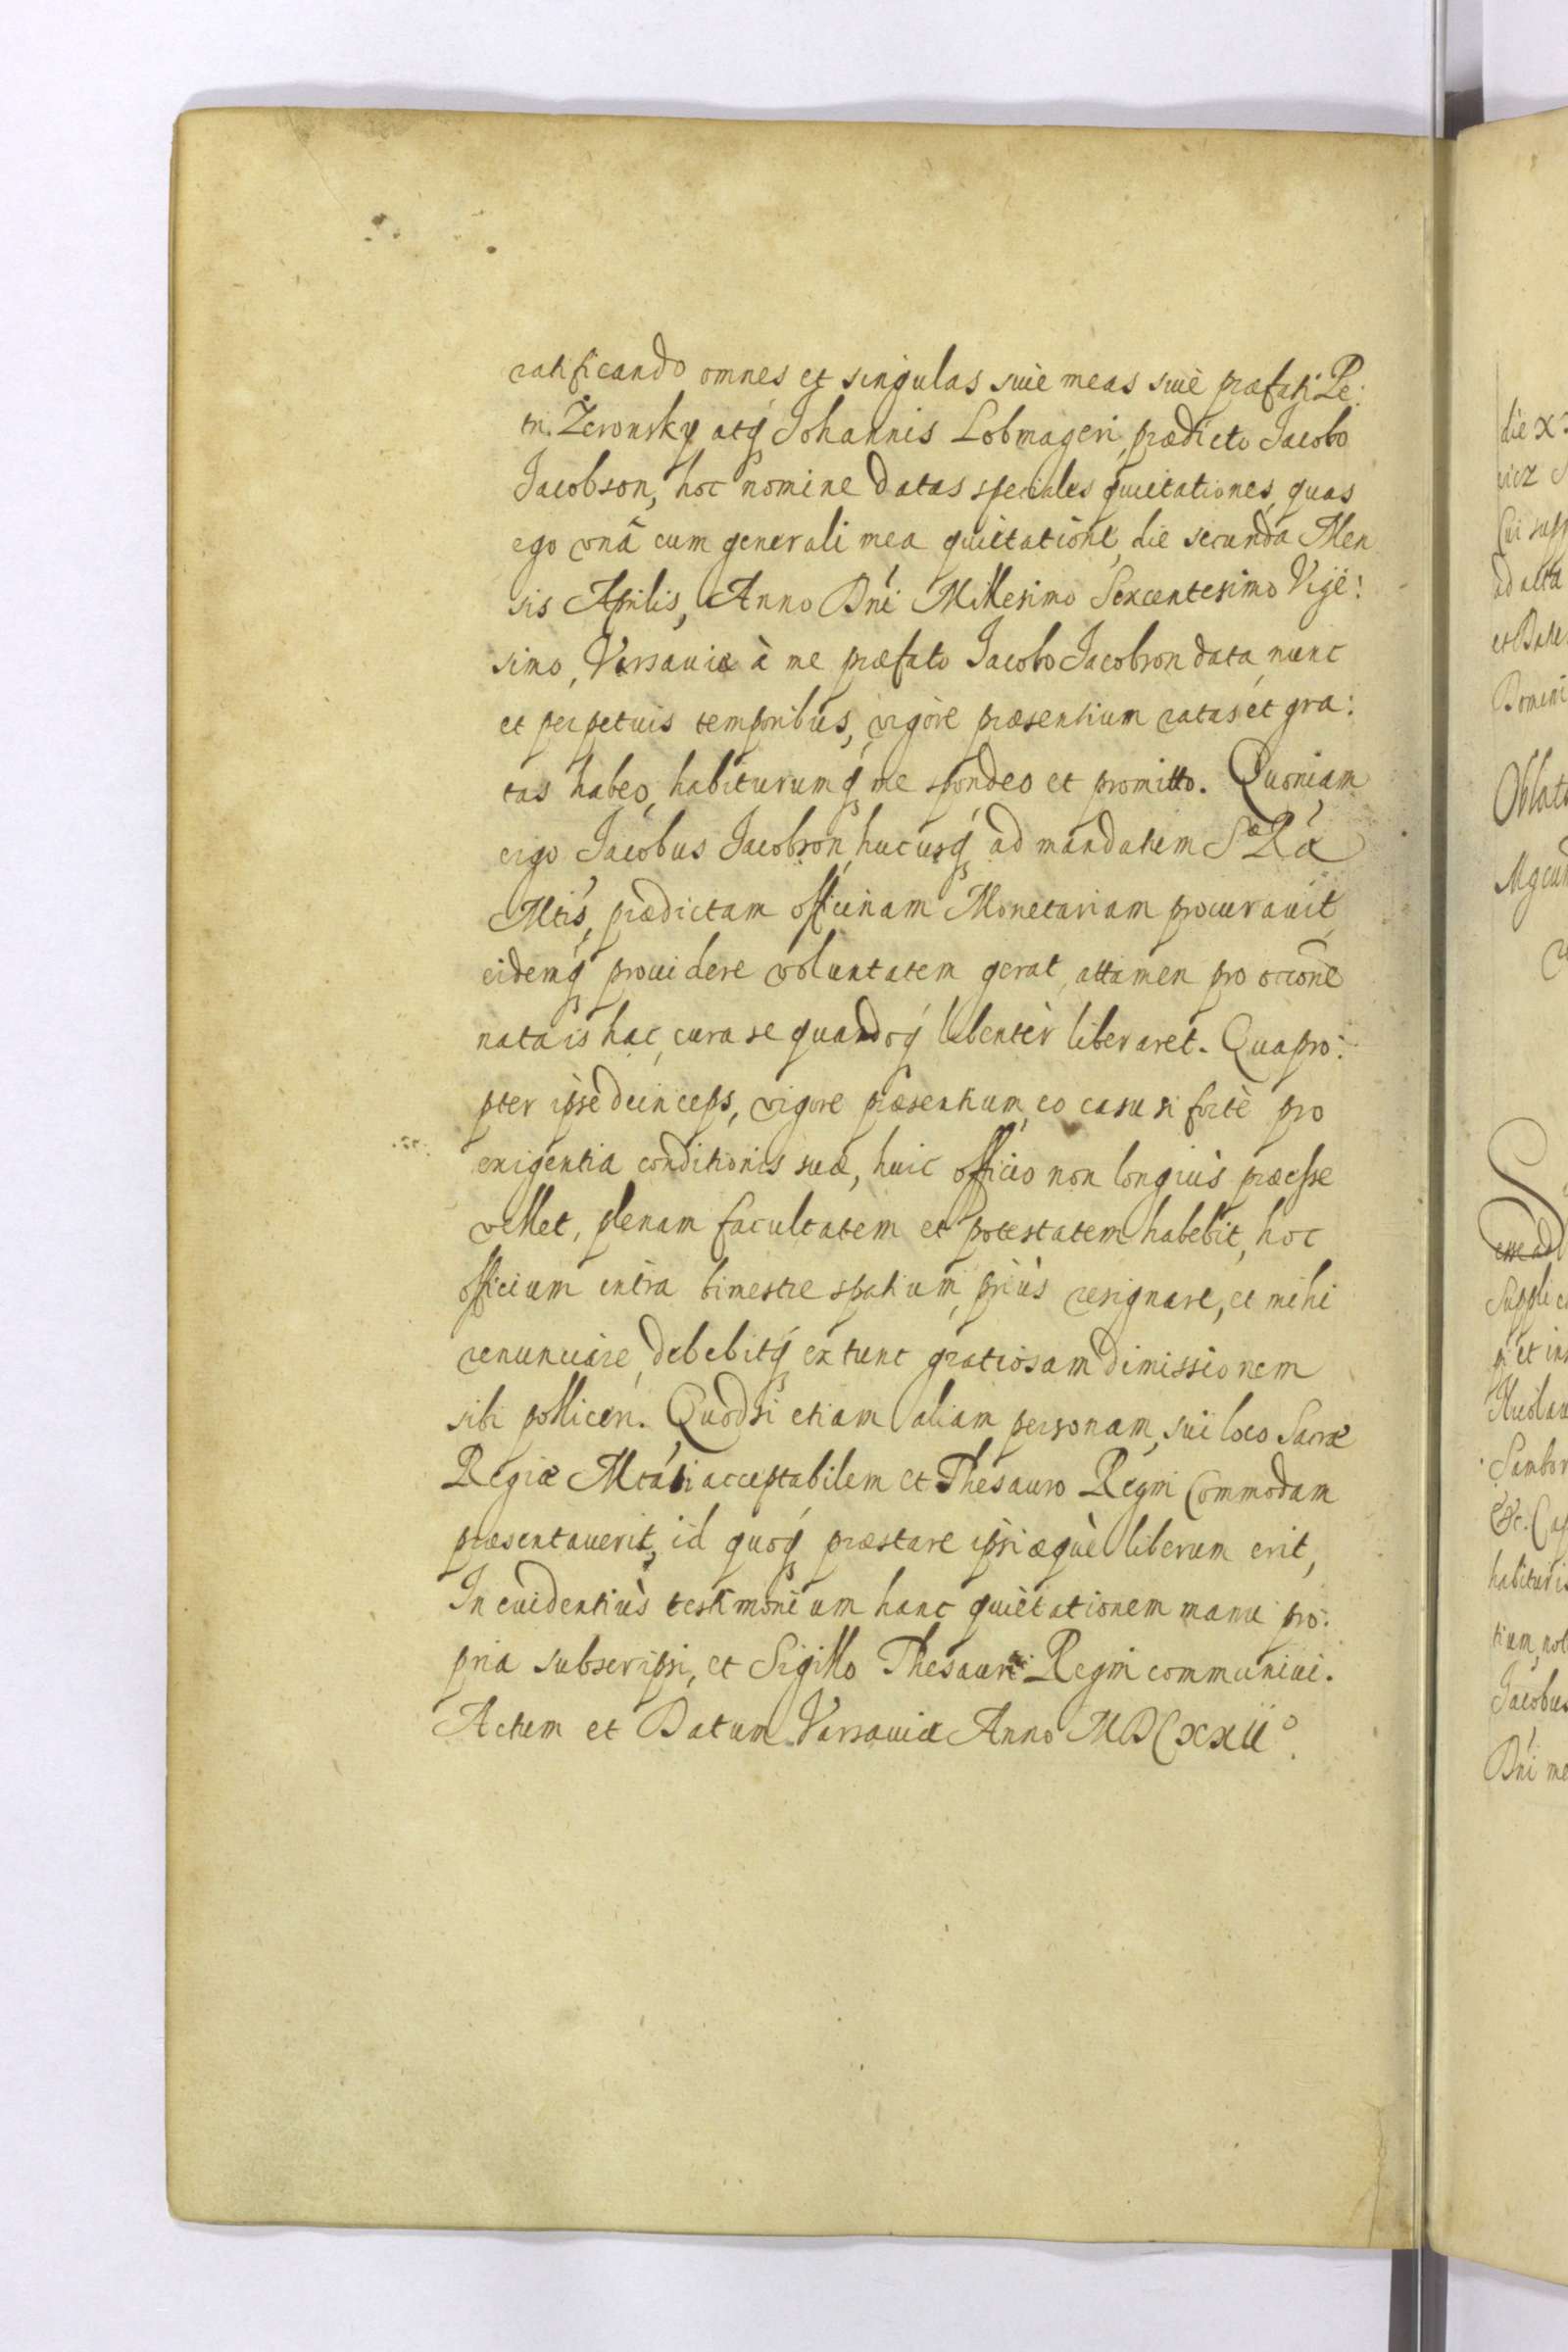 ratificando omnes et singulas siue meas siuè præfati Pe:
tri Zeronsky atq́ Johannis Lobmageri, prædicto Jacobo
Jacobson, hoc nomine datas speciales quietationes, quas
ego vnâ cum generali mea quietatione, die secunda Men
sis Aprilis, Anno Dńi Millesimo Sexcentesimo Vige:
simo, Varsauiæ à me præfato Jacobo Jacobson data, nunc
et perpetuis temporibus, vigore præsentium ratas et gra:
tas habeo, habiturumq́ me spondeo et promitto. Quoniam
ergo Jacobus Jacobson hucusq́ ad mandatum Sæ Ræ
Mtis, prædictam officinam Monetariam procurauit,
eidemq́ prouidere voluntatem gerat, attamen pro occõne
nata is hac cura se quandoq́ libentèr liberaret. Quapro:
pter ipse deinceps, vigore præsentium, eo casu si fortè pro
exigentia conditionis suæ, huic officio non longiùs præesse
vellet, plenam facultatem et potestatem habebit, hoc
officium intra bimestre spatium, priùs resignare, et mihi
renunciare, debebitq́ ex tunc gratiosam dimissionem
sibi polliceri. Quodsi etiam aliam personam, sui loco Sacræ
Regiæ Mtáti acceptabilem et Thesauro Regni Commodam
præsentauerit, id quoq́ præstare ipsi æquè liberum erit,
In euidentiùs testimonium hanc quietationem manu pro:
pria subscripsi, et Sigillo Thesauri Regni communiui.
Actum et Datum Varsauiæ Anno MDCxxii°.
die x
uicz
Cui supp
ad acta
Domini
Oblat
esse ad
Supplic
Sambor
&c. Cap
habituris
Jacobus
Dńi me